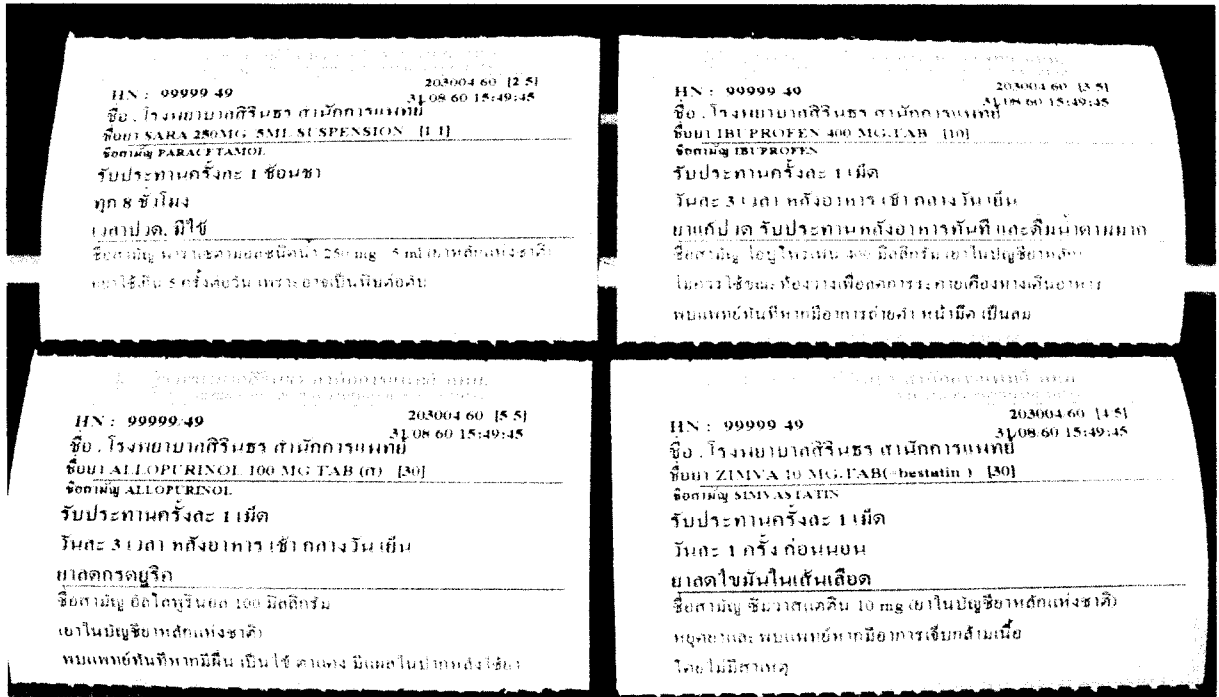 HN : 99999 49 203004 60 [2 5]
31 08 60 15:49:45
ชื่อ . โรงพยาบาลสิรินธร สำนักการแพทย์
ชื่อยา SARA 250MG 5ML SUSPENSION [1 1]
ชื่อสามัญ PARACETAMOL
รับประทานครั้งละ 1 ช้อนชา
ทุก 8 ชั่วโมง
เวลาปวด, มีไข้
ชื่อสามัญ พาราเซตามอลชนิดน้ำ 250 mg 5 ml (ยาหลักแห่งชาติ)
อย่าใช้เกิน 5 ครั้งต่อวัน เพราะอาจเป็นพิษต่อตับ
HN : 99999 49 203004 60 [3 5]
31 08 60 15:49:45
ชื่อ . โรงพยาบาลสิรินธร สำนักการแพทย์
ชื่อยา IBUPROFEN 400 MG.TAB [10]
ชื่อสามัญ IBUPROFEN
รับประทานครั้งละ 1 เม็ด
วันละ 3 เวลา หลังอาหาร เช้า กลางวัน เย็น
ยาแก้ปวด รับประทานหลังอาหารทันที และดื่มน้ำตามมาก
ชื่อสามัญ ไอบูโพรเฟน 400 มิลลิกรัม (ยาในบัญชียาหลัก)
ไม่ควรใช้ขณะท้องว่างเพื่อลดการระคายเคืองทางเดินอาหาร
พบแพทย์ทันทีหากมีอาการถ่ายดำ หน้ามืด เป็นลม
HN : 99999/49 203004 60 [5 5]
31/08 60 15:49:45
ชื่อ . โรงพยาบาลสิรินธร สำนักการแพทย์
ชื่อยา ALLOPURINOL 100 MG TAB (ก) [30]
ชื่อสามัญ ALLOPURINOL
รับประทานครั้งละ 1 เม็ด
วันละ 3 เวลา หลังอาหาร เช้า กลางวัน เย็น
ยาลดกรดยูริค
ชื่อสามัญ อัลโลพูรินอล 100 มิลลิกรัม
(ยาในบัญชียาหลักแห่งชาติ)
พบแพทย์ทันทีหากมีผื่น เป็นไข้ ตาแดง มีแผลในปากหลังใช้ยา
HN : 99999 49 203004 60 [4 5]
31/08 60 15:49:45
ชื่อ . โรงพยาบาลสิรินธร สำนักการแพทย์
ชื่อยา ZIMVA 10 MG.TAB(=bestatin ) [30]
ชื่อสามัญ SIMVASTATIN
รับประทานครั้งละ 1 เม็ด
วันละ 1 ครั้ง ก่อนนอน
ยาลดไขมันในเส้นเลือด
ชื่อสามัญ ซิมวาสแตติน 10 mg (ยาในบัญชียาหลักแห่งชาติ)
หยุดยาและ พบแพทย์หากมีอาการเจ็บกล้ามเนื้อ
โดยไม่มีสาเหตุ